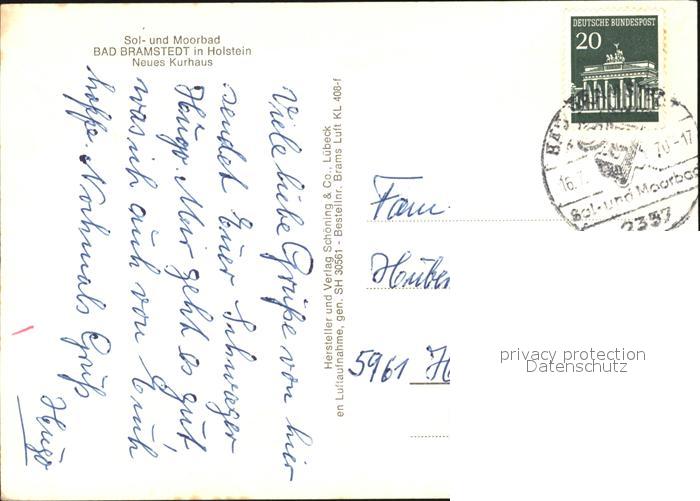 Sol- und Moorbad
BAD BRAMSTEDT in Holstein
Neues Kurhaus
Viele liebe Grüße von hier
sendet Euer Schwager
Hugo. Mir geht es gut,
was ich auch von Euch
hoffe. Nochmals Gruß
Hugo
Hersteller und Verlag Schöning & Co., Lübeck
en Luftaufnahme, gen. SH 30561 - Bestellnr. Brams Luft KL 408-f
DEUTSCHE BUNDESPOST
20
70-17
16.
Sol- und Moorbad
2357
Fam.
5961
privacy protection
Datenschutz